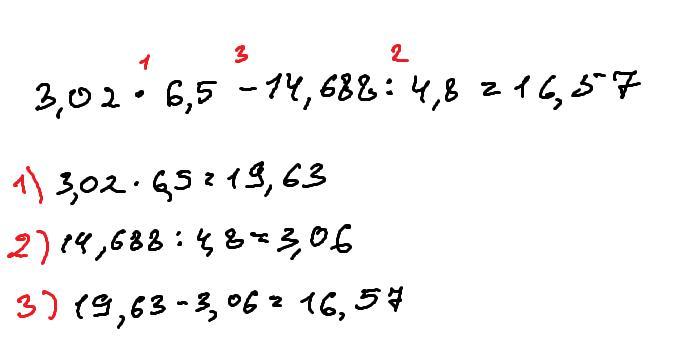 1 3 2
3,02 · 6,5 - 14,688 : 4,8 = 16,57
1) 3,02 · 6,5 = 19,63
2) 14,688 : 4,8 = 3,06
3) 19,63 - 3,06 = 16,57